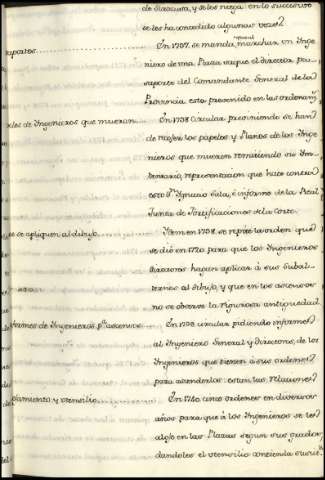 de diascura, y se les niega en lo succesivo
se les ha concedido algunas vezes.
En 1707. se manda, marchar un Inge
niero de una Plaza saque el director pa-
saportes.
saporte del Comandante General de la
Provincia, esta prevenido en las ordenanzas
les de Ingenieros que mueran.
En 1738 Circular previniendo se han
de recojer los papeles y Planos de los Inge
nieros que mueran remitiendo su In-
bentario, representacion que hace
esto Dn. Ignacio Sala, é informe de la Real
Junta de Fortificaciones de la Corte.
se apliquen al dibujo.
Item en 1738. se repite la orden que
se dió en 1720 para que los Ingenieros
Directores hagan aplicar á sus subal-
ternos al dibujo, y que en los ascensos
no se observe la rigurosa antiguedad
formes de Ingenieros pa. ascensos
En 1738 circular pidiendo informes
al Ingeniero General y Directores, de los
Ingenieros que tienen á sus ordenes
para atenderlos: estan las relaciones
jamiento y utensilio
En 1740. unas ordenes en diversos
años para que á los Ingenieros se les
aloje en las Plazas segun sus grados
dandoles el utensilio